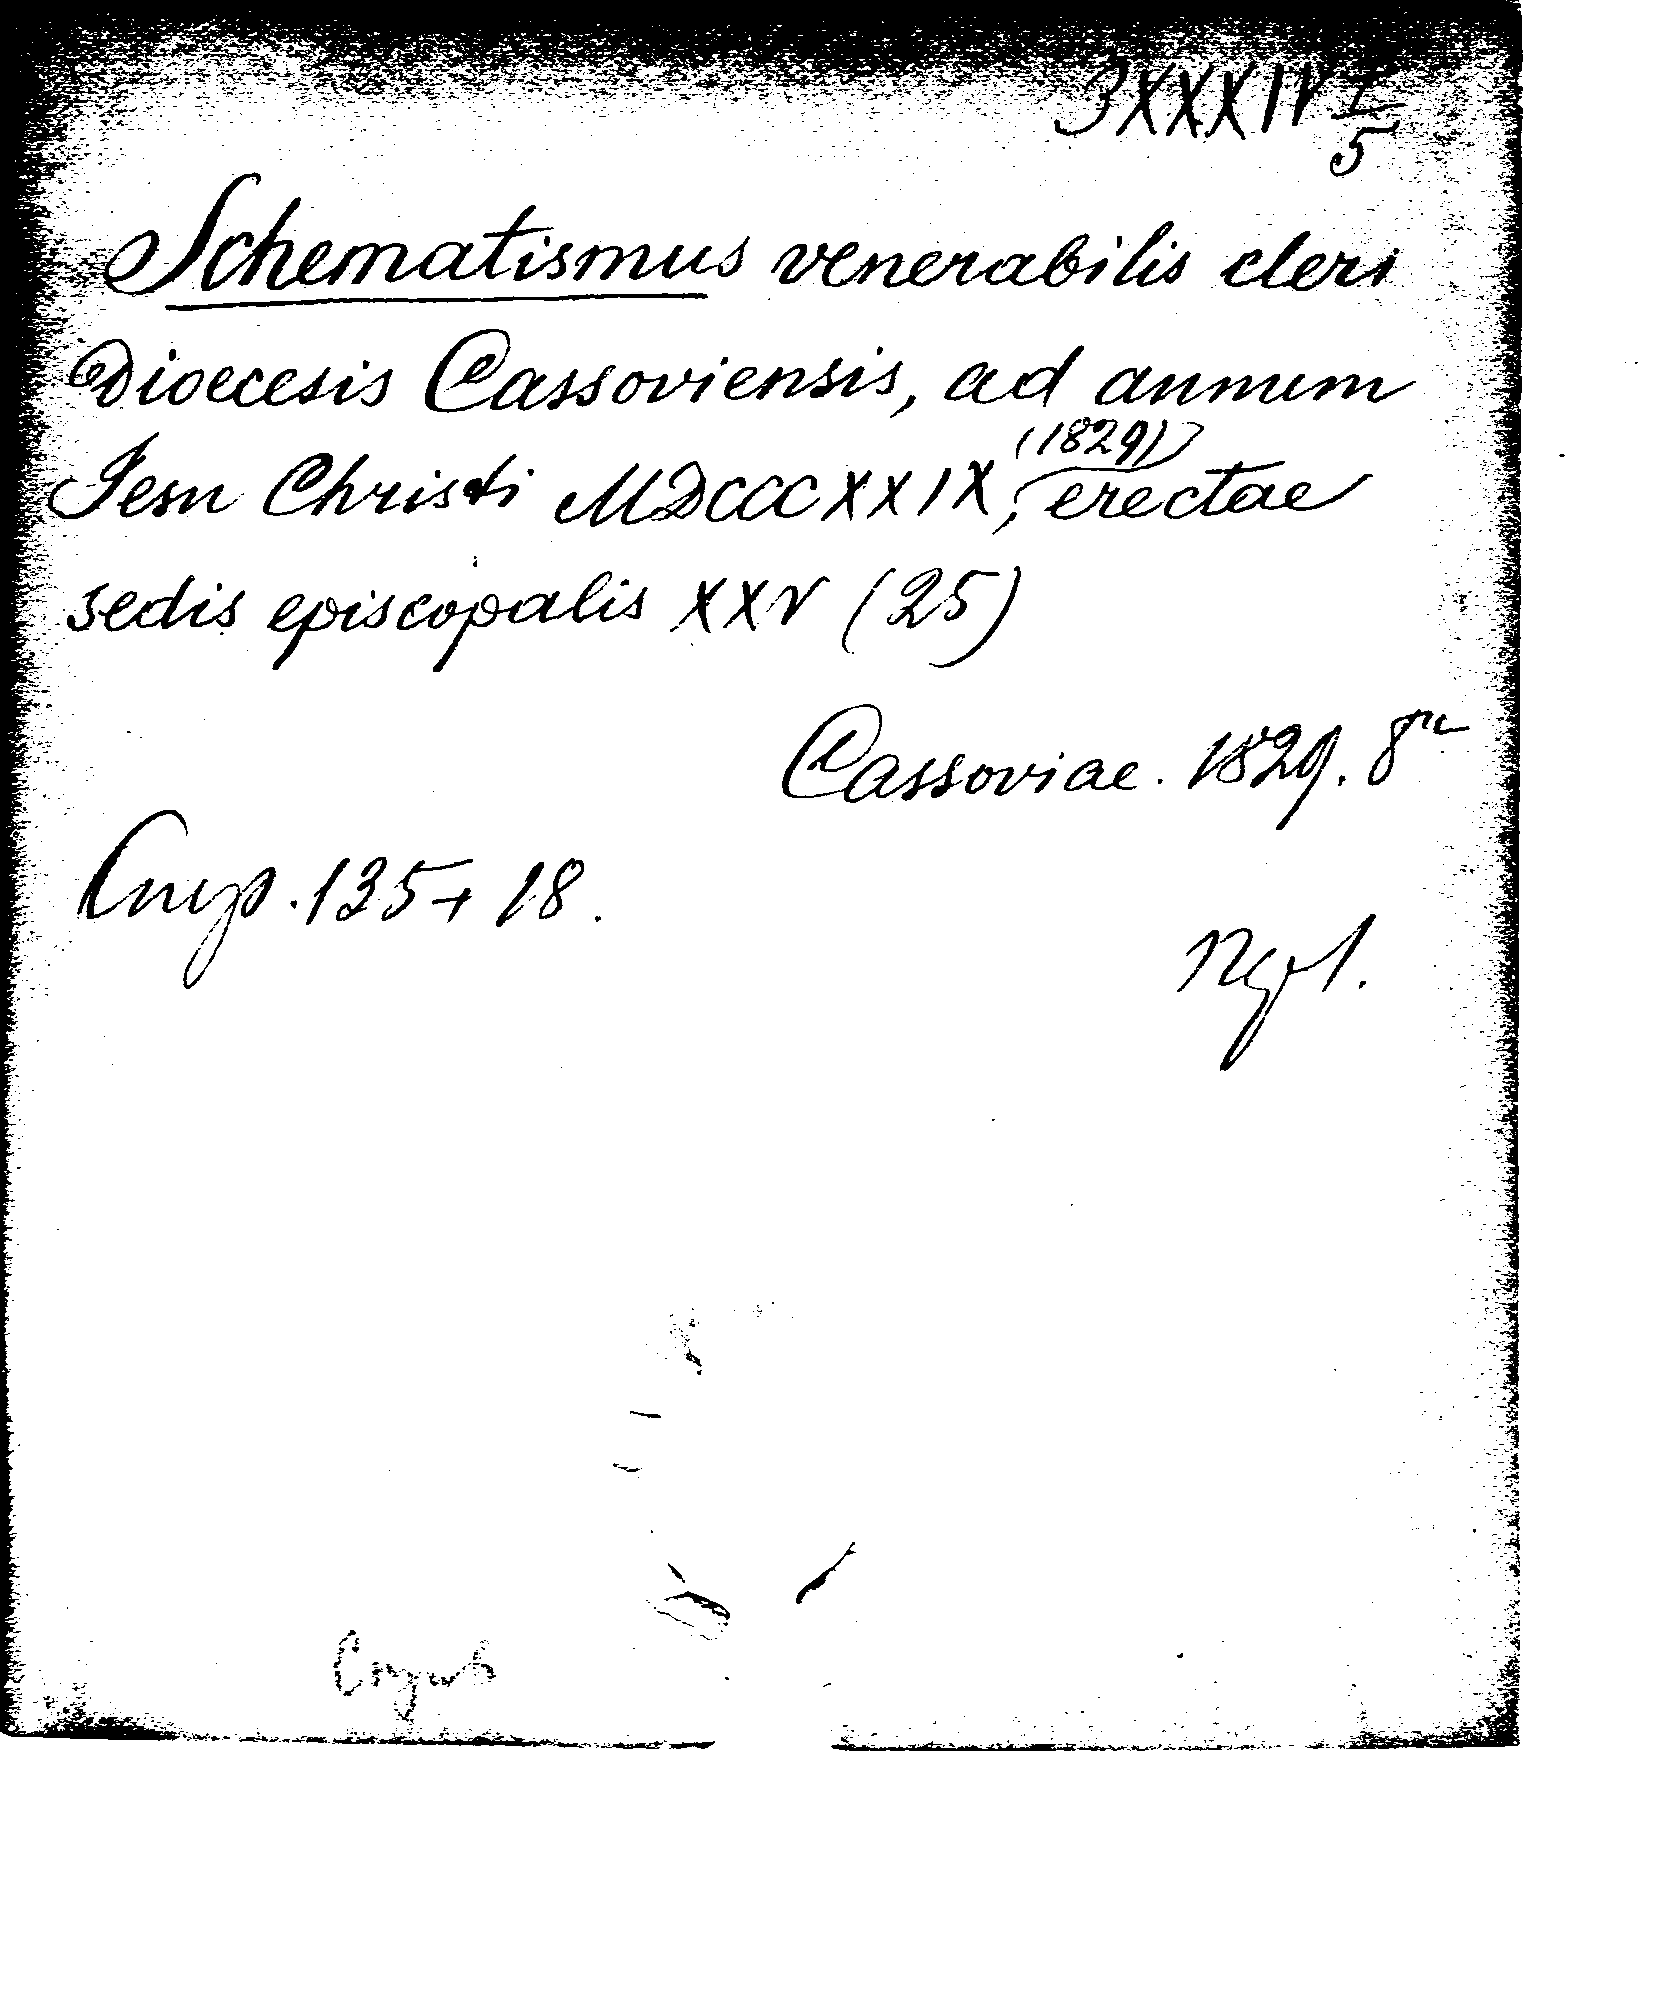 ЗXXXIV I/5
Schematismus venerabilis cleri
Dioecesis Cassoviensis, ad annum
(1829)
Jesu Christi MDCCCXXIX, erectae
sedis episcopalis XXV (25)
Cassoviae. 1829. 8ᵛᵒ
Стр. 135 + 18.